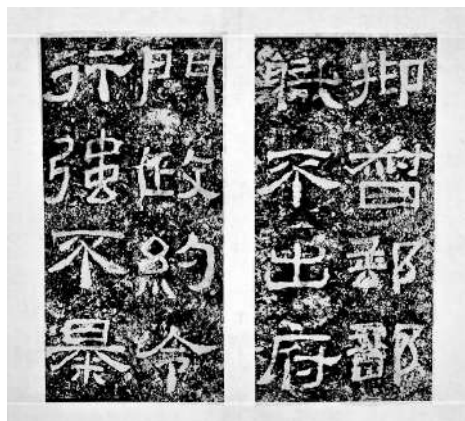 抑督郵部
職不出府
門政約令
行強不暴